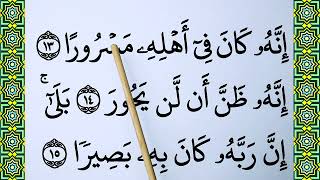 إِنَّهُۥ كَانَ فِيٓ أَهۡلِهِۦ مَسۡرُورًا ١٣
إِنَّهُۥ ظَنَّ أَن لَّن يَحُورَ ١٤ بَلَىٰٓۚ
إِنَّ رَبَّهُۥ كَانَ بِهِۦ بَصِيرًا ١٥